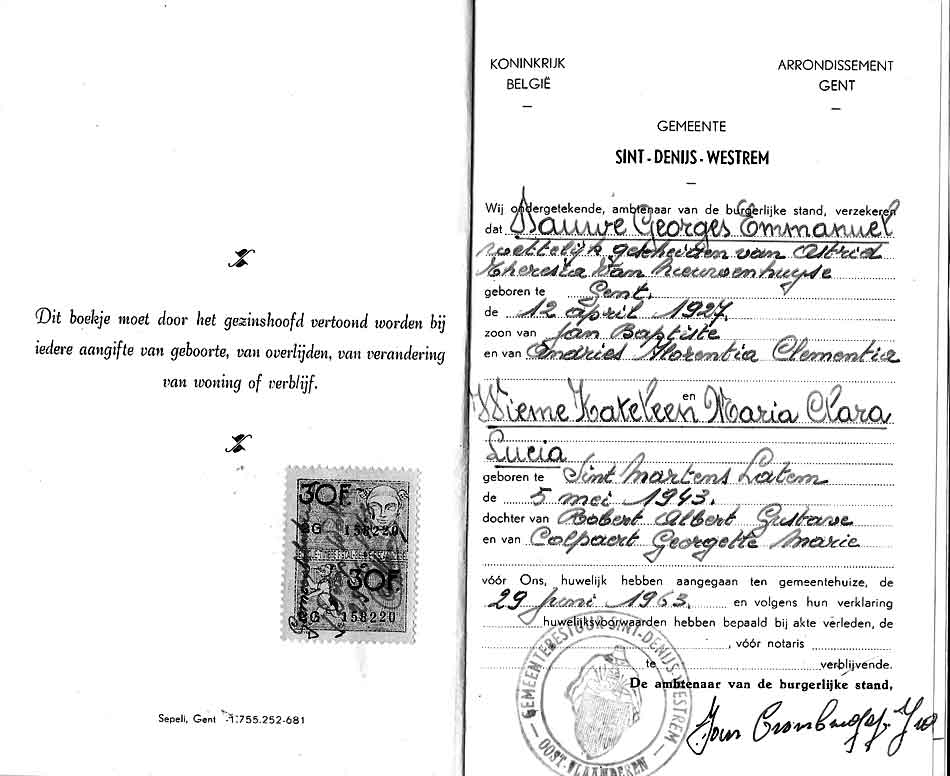 Dit boekje moet door het gezinshoofd vertoond worden bij
iedere aangifte van geboorte, van overlijden, van verandering
van woning of verblijf.
30F
G 158220
30F
G 158220
Sepeli, Gent -1.755.252-681
KONINKRIJK
BELGIË
ARRONDISSEMENT
GENT
GEMEENTE
SINT-DENIJS-WESTREM
Wij ondergetekende, ambtenaar van de burgerlijke stand, verzekeren
dat Nauwe Georges Emmanuel
wettelijk gescheiden van Astrid
Theresia Van Nieuwenhuyse
geboren te Gent.
de 12 april 1927.
zoon van Jan Baptiste
en van Andries Florentia Clementia
en
Wieme Kateleen Maria Clara
Lucia
geboren te Sint Martens Latem
de 5 mei 1943.
dochter van Robert Albert Gustave
en van Colpaert Georgette Marie
vóór Ons, huwelijk hebben aangegaan ten gemeentehuize, de
29 Juni 1963. en volgens hun verklaring
huwelijksvoorwaarden hebben bepaald bij akte verleden, de
, vóór notaris
te verblijvende.
De ambtenaar van de burgerlijke stand,
GEMEENTEBESTUUR SINT-DENIJS-WESTREM
OOST-VLAANDEREN